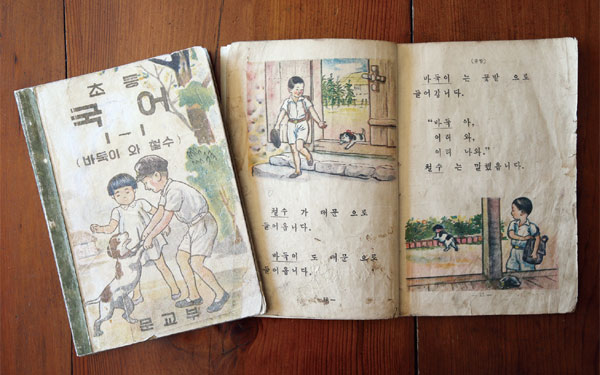 초등
국어
1-1
(바둑이 와 철수)
문교부
철수 가 대문 으로
들어옵니다.
바둑이 도 대문 으로
들어옵니다.
바둑이 는 꽃밭 으로
들어갑니다.
"바둑 아,
이리 와,
이리 나와."
철수 는 말했읍니다.